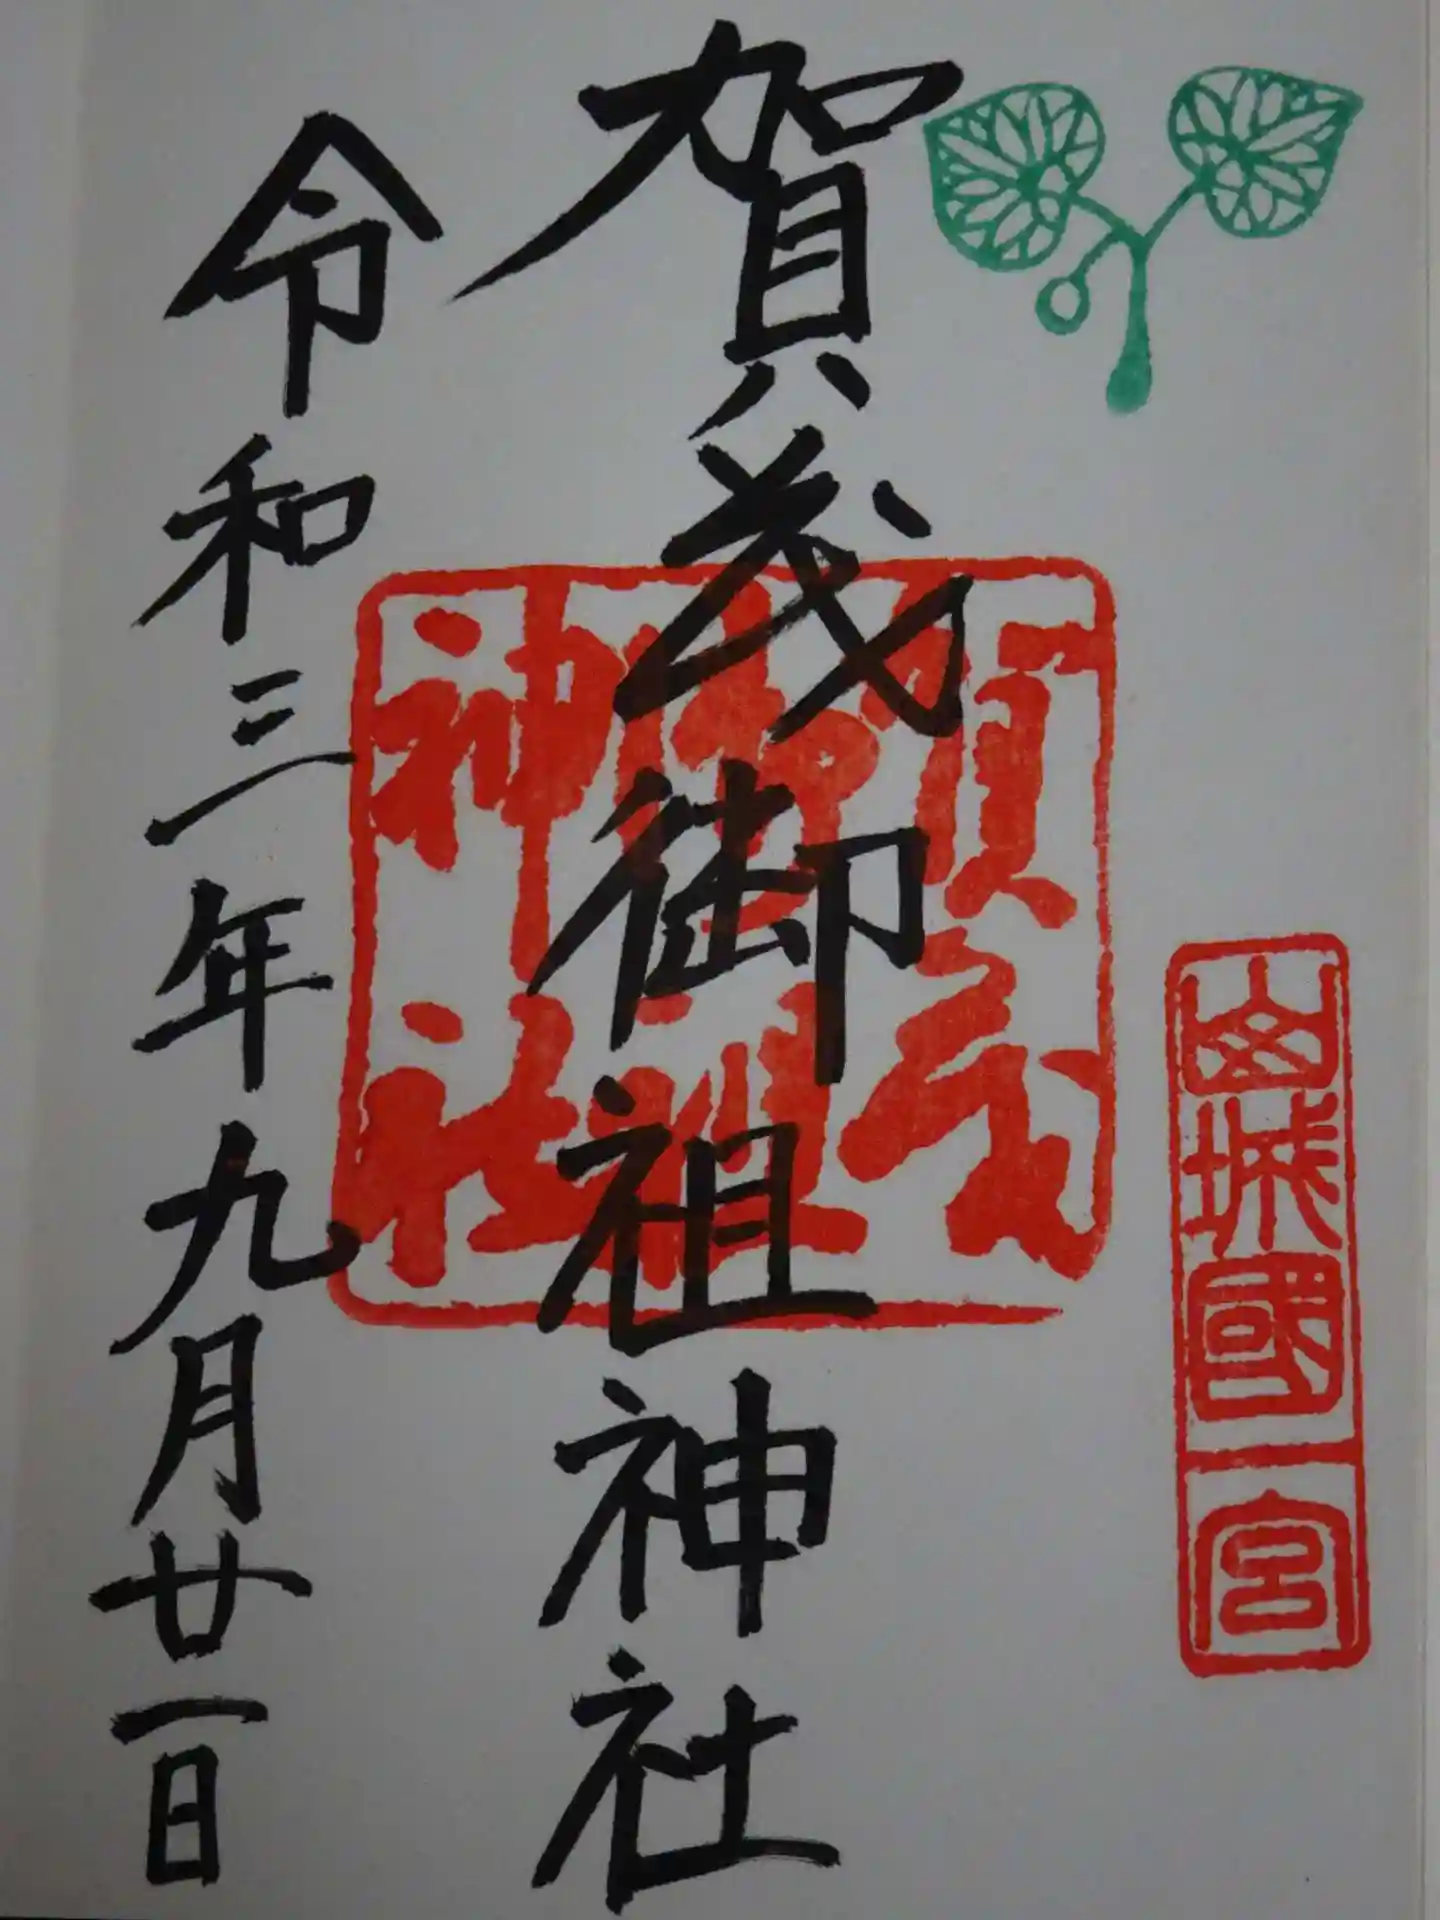 山城國
一宮
賀茂御祖神社
賀茂
御祖
神社
令和三年九月廿一日